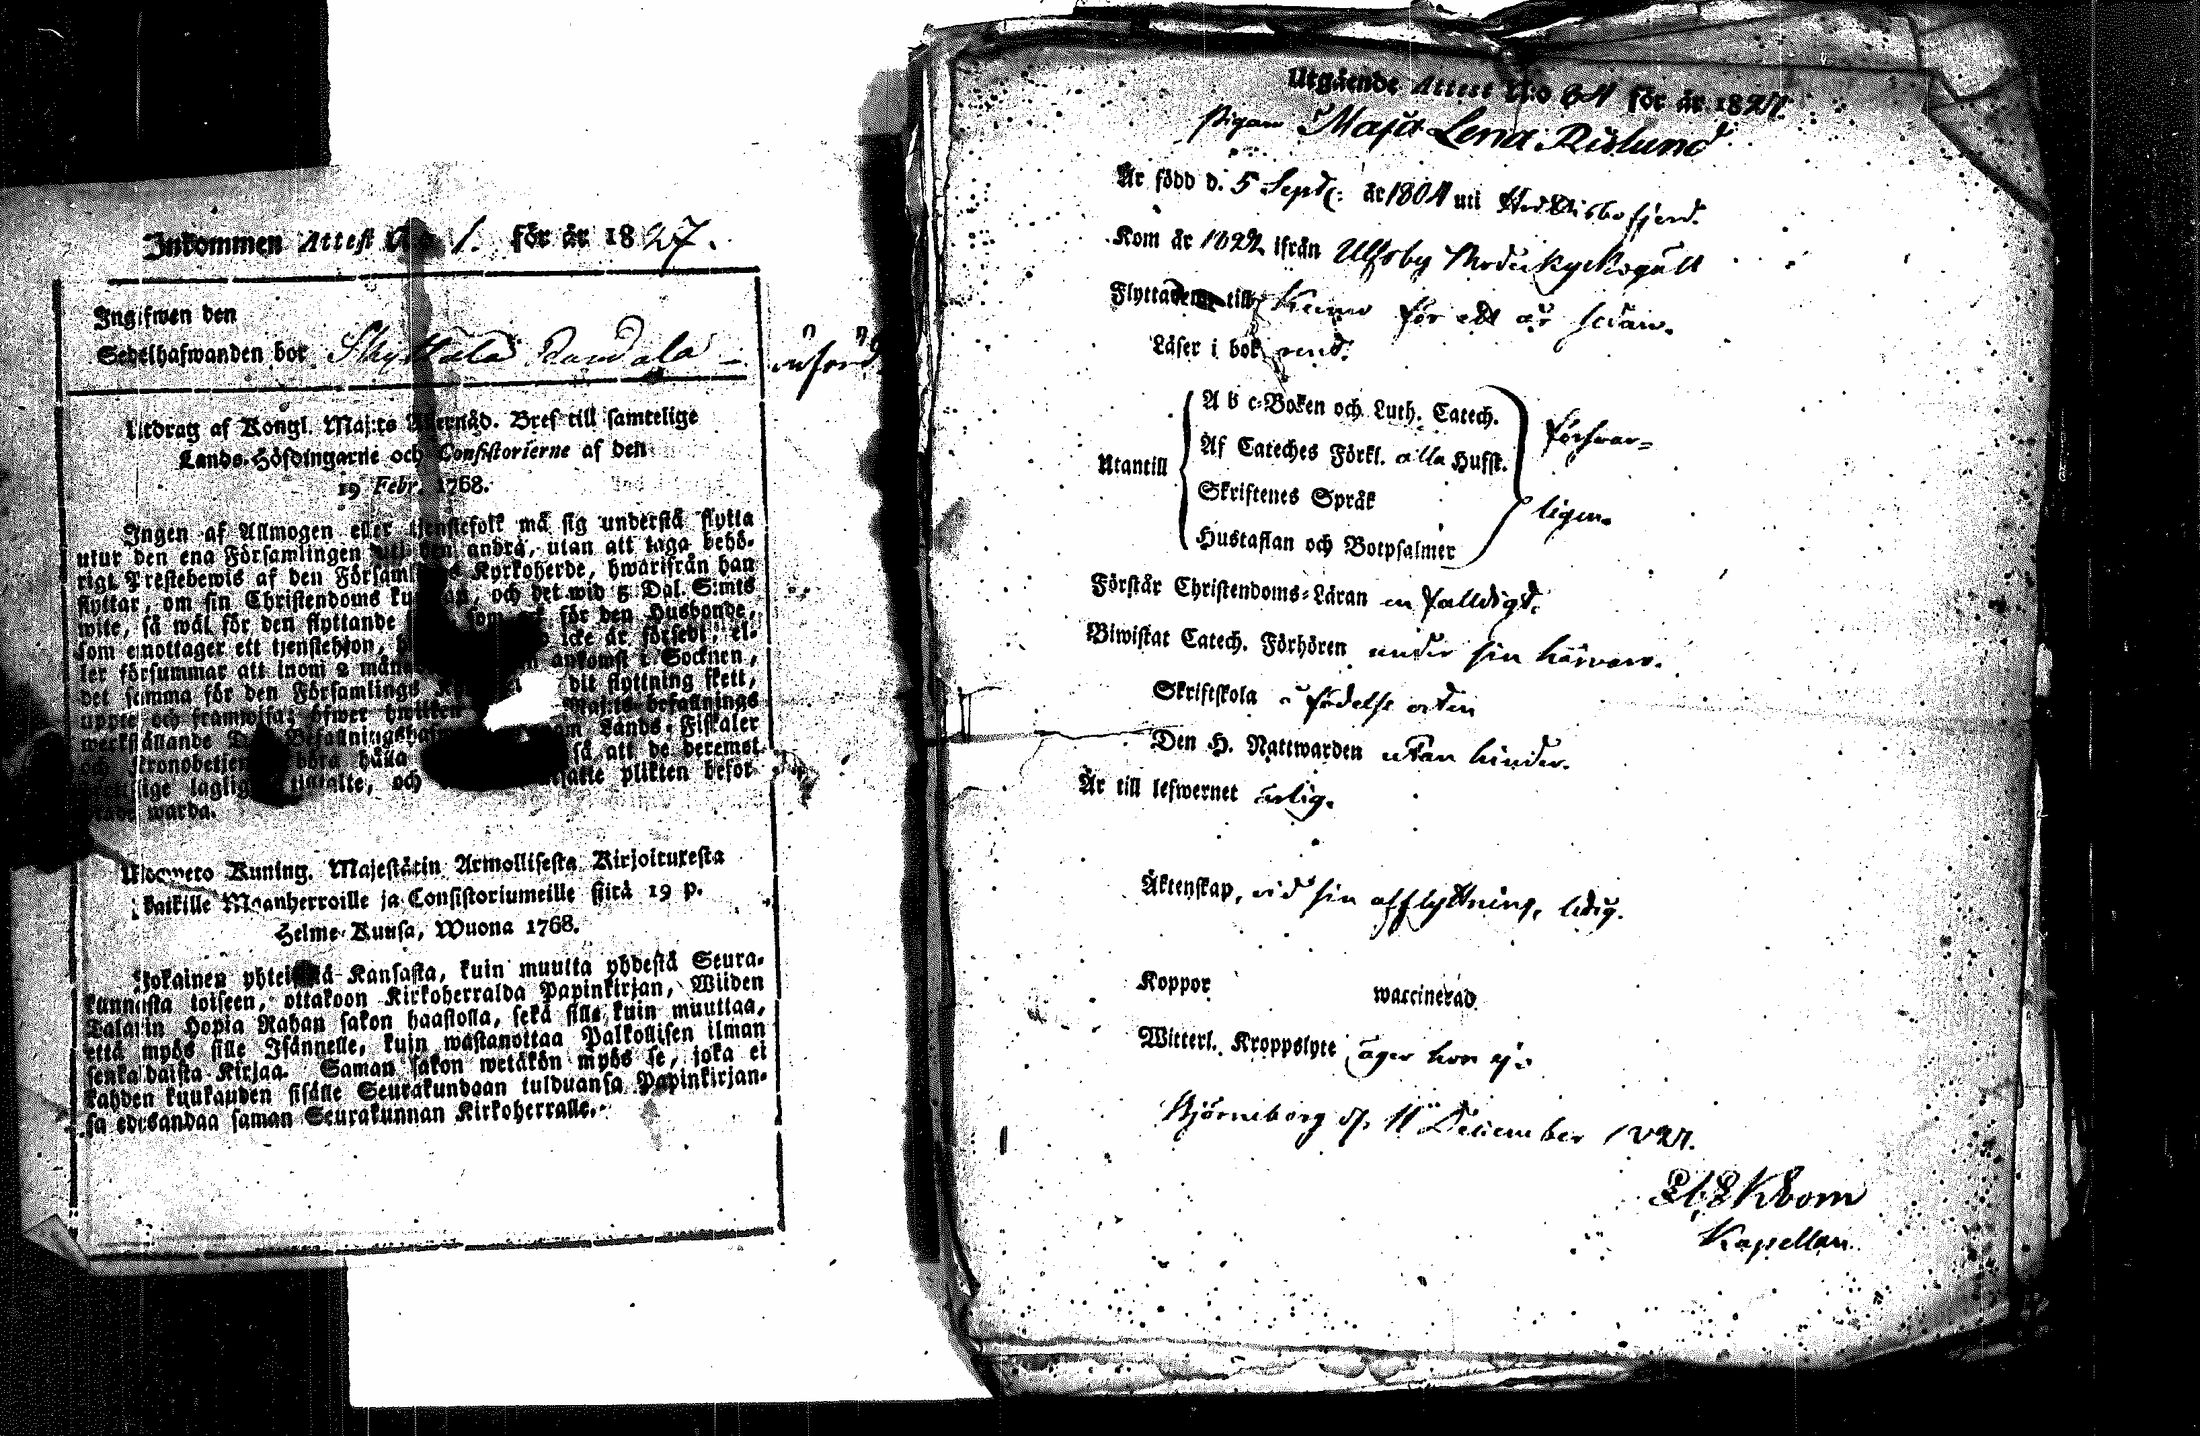 Inkommen Attest N:o 1. för år 1827.
Ingifwen den
Sedelhafwanden bor
Utdrag af Kongl. Maj:ts Allernåd. Bref till samtelige
Lands-Höfdingarne och Consistorierne af den
19 Febr. 1768.
Ingen af Allmogen eller tjenstefolk må sig understå flytta
utur den ena Församlingen till den andra, utan att taga behö-
rigt Prestebewis af den Församlings Kyrkoherde, hwarifrån han
flyttar, om sin Christendoms kunskap, och det wid 5 Dal. S:mts
wite, så wäl för den flyttande som för den Husbonde,
som emottager ett tjenstehjon, icke är försedt, el-
ler försummar att inom 2 måna ankomst i Socknen,
det samma för den Församlings dit flyttning skett,
uppte och framwisa; öfwer hwilken Maj:ts befallnings
werkställande Befallningshaf Lands-Fiskaler
och Kronobetjen böra hålla så att de beremst
laglig tiltalte, och plikten befor-
warda.
Ulosweto Kuning. Majestätin Armollisesta Kirjoituxesta
kaikille Maanherroille ja Consistoriumeille siitä 19 p.
Helme-Kuusa, Wuona 1768.
Jokainen yhteisestä Kansasta, kuin muutta yhdestä Seura-
kunnasta toiseen, ottakoon Kirkoherralda Papinkirjan, Wiiden
Talarin Hopia Rahan sakon haastolla, sekä sille kuin muuttaa,
että myös sille Isännelle, kuin wastanottaa Palkollisen ilman
senkaldaista Kirjaa. Saman sakon wetäkön myös se, joka ei
kahden kuukauden sisälle Seurakundaan tulduansa Papinkirjan-
sa edesandaa saman Seurakunnan Kirkoherralle.
Utgående Attest N:o 64 för år 1827.
Pigan Maja Lena Rislund
Är född d. 5 Sept: år 1804 uti
Kom år 1822 ifrån Ulfsby
Flyttade till Kumo för ett år sedan.
Läser i bok
A b c-Boken och Luth. Catech.
Utantill Af Cateches Förkl. alla Hufst. försvar-
Skriftenes Språk ligen.
Hustaflan och Botpsalmer
Förstår Christendoms-Läran enfalldigt.
Biwistat Catech. Förhören under sin härvaro.
Skriftskola å födelse orten
Den H. Nattwarden utan hinder.
Är till lefwernet ärlig.
Äktenskap, vid sin afflyttning, ledig.
Koppor waccinerad
Witterl. Kroppslyte äger hon ej.
Björneborg d. 11 December 1827.
Ekbom
Kapellan.